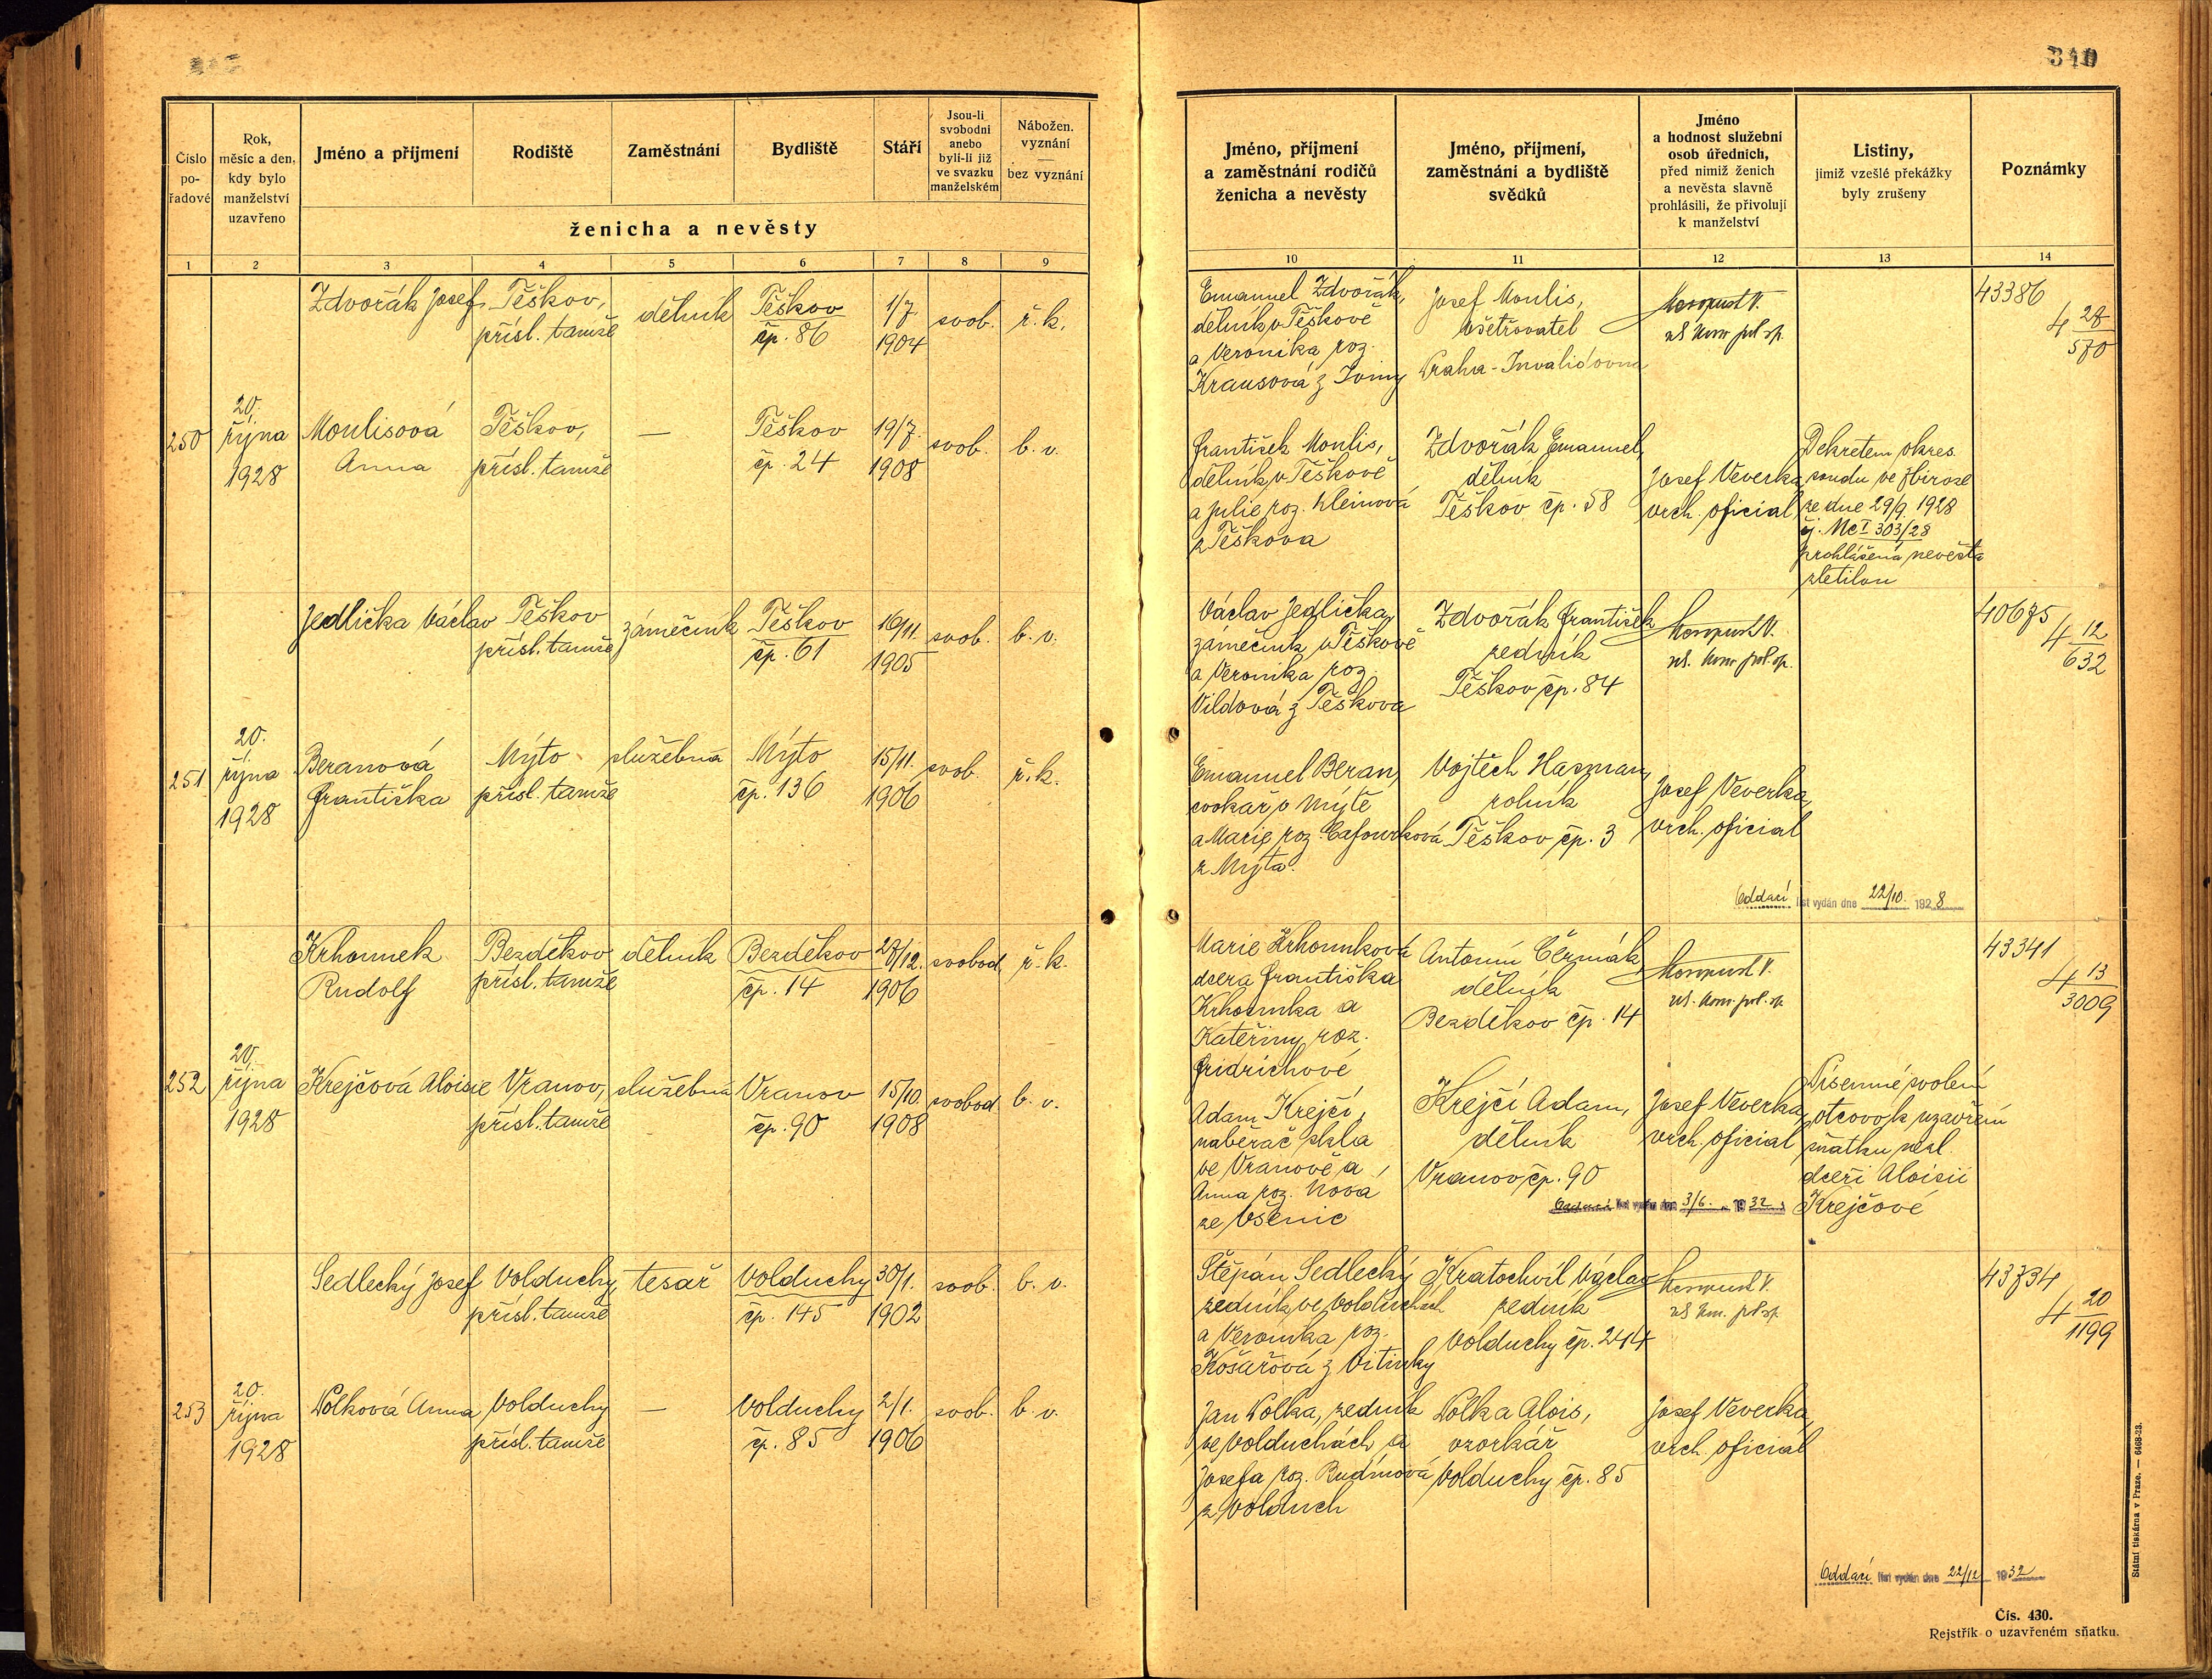 310
Číslo
po-
řadové
Rok,
měsíc a den,
kdy bylo
manželství
uzavřeno
Jméno a příjmení
Rodiště
Zaměstnání
Bydliště
Stáří
Jsou-li
svobodni
anebo
byli-li již
ve svazku
manželském
Nábožen.
vyznání
—
bez vyznání
ženicha a nevěsty
1 2 3 4 5 6 7 8 9
Zdvořák Josef
Těškov,
přísl. tamže
dělník
Těškov
čp. 86
1/7.
1904
svob.
ř. k.
250
20.
října
1928
Moulisová
Anna
Těškov,
přísl. tamže
—
Těškov
čp. 24
19/7.
1908
svob.
b. v.
Jedlička Václav
Těškov
přísl. tamže
zámečník
Těškov
čp. 61
16/11.
1905
svob.
b. v.
251
20.
října
1928
Beranová
Františka
Mýto
přísl. tamže
služebná
Mýto
čp. 136
15/11.
1906
svob.
ř. k.
Krhounek
Rudolf
Bezděkov
přísl. tamže
dělník
Bezděkov
čp. 14
27/12.
1906
svobod.
ř. k.
252
20.
října
1928
Krejčová Aloisie
Vranov,
přísl. tamže
služebná
Vranov
čp. 90
15/10.
1908
svobod.
b. v.
Sedlecký Josef
Volduchy,
přísl. tamže
tesař
Volduchy
čp. 145
30/1.
1902
svob.
b. v.
253
20.
října
1928
Polková Anna
Volduchy
přísl. tamže
—
Volduchy
čp. 85
2/1.
1906
svob.
b. v.
Jméno, příjmení
a zaměstnání rodičů
ženicha a nevěsty
Jméno, příjmení,
zaměstnání a bydliště
svědků
Jméno
a hodnost služební
osob úředních,
před nimiž ženich
a nevěsta slavně
prohlásili, že přivolují
k manželství
Listiny,
jimiž vzešlé překážky
byly zrušeny
Poznámky
10 11 12 13 14
Emanuel Zdvořák,
dělník v Těškově
a Veronika roz.
Krausová z
Josef Moulis,
ošetřovatel
Praha-Invalidovna
43386
4 28/570
František Moulis,
dělník v Těškově
a Julie roz. Kleinová
z Těškova
Zdvořák Emanuel,
dělník
Těškov čp. 58
Josef Veverka,
vrch. oficial
Dekretem okres.
soudu ve Zbiroze
ze dne 29/9. 1928
čj. Nc I 303/28
prohlášena nevěsta
zletilou
Václav Jedlička,
zámečník v Těškově
a Veronika roz.
Vildová z Těškova
Zdvořák František
zedník
Těškov čp. 84
40675
4 12/632
Emanuel Beran,
cvokař v Mýtě
a Marie roz. Cafourková
z Mýta.
Vojtěch Hasman,
rolník
Těškov čp. 3
Josef Veverka,
vrch. oficial
Oddací list vydán dne 22/10. 1928
Marie Krhounková
dcera Františka
Krhounka a
Kateřiny roz.
Fridrichové
Antonín Čermák
dělník
Bezděkov čp. 14
43341
4 13/3009
Adam Krejčí,
naběrač skla
ve Vranově a
Anna roz. Nová
ze Všenic
Krejčí Adam,
dělník
Vranov čp. 90
Josef Veverka,
vrch. oficial
Písemné svolení
otcovo k uzavření
sňatku nezl.
dceři Aloisii
Krejčové
Oddací list vydán dne 3/6. 1932
Štěpán Sedlecký
zedník ve Volduchách
a Veronika roz.
Košařová z Vitinky
Kratochvíl Václav
zedník
Volduchy čp. 244
43734
4 20/1199
Jan Polka, zedník
ve Volduchách a
Josefa roz. Rudinová
z Volduch
Polka Alois,
vzorkář
Volduchy čp. 85
Josef Veverka,
vrch. oficial
Oddací list vydán dne 22/12 1932
Státní tiskárna v Praze. — 6468-23.
Čís. 430.
Rejstřík o uzavřeném sňatku.